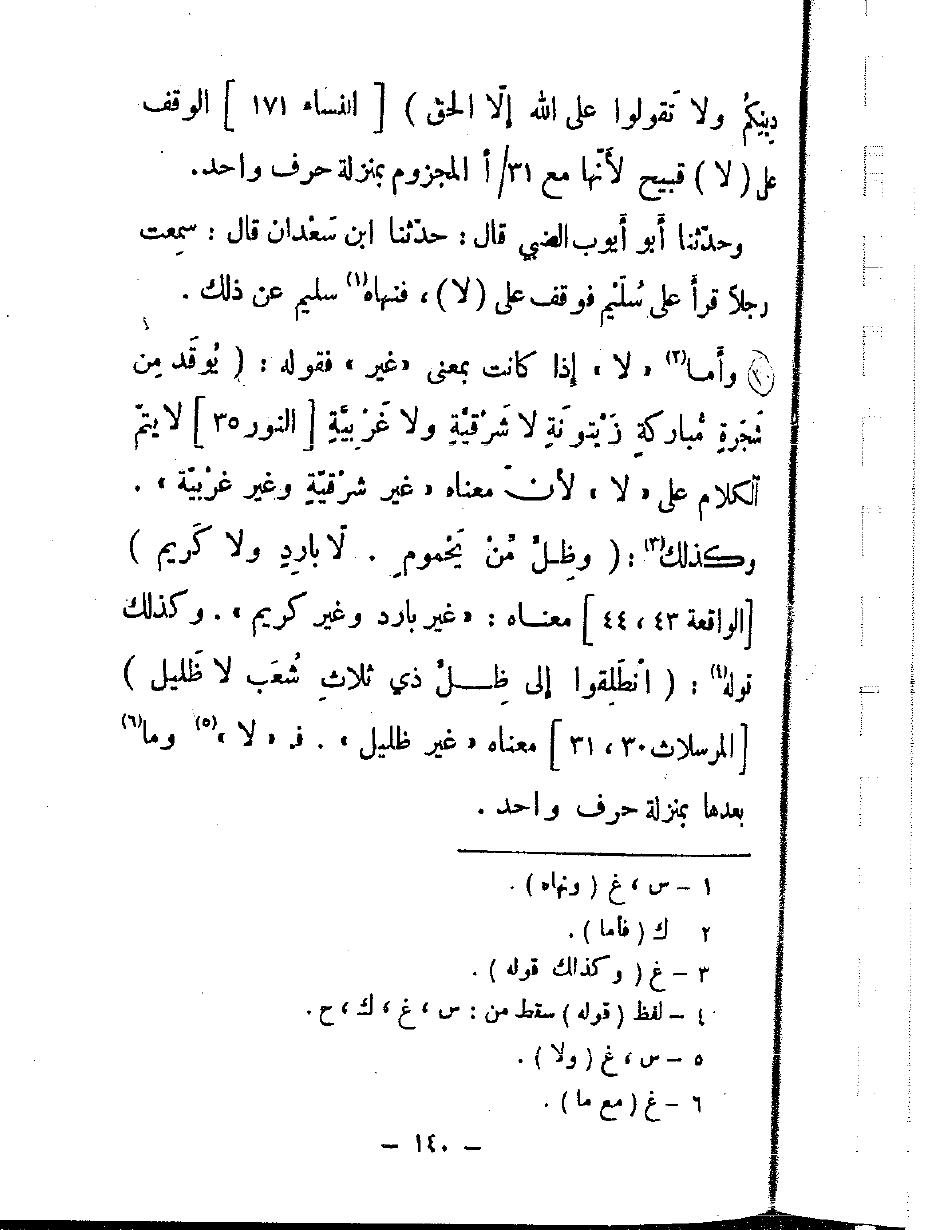 دِينِكُم ولا تَقولوا على الله إلّا الحق ) [ النساء ١٧١ ] الوقف
على ( لا ) قبيح لأنّها مع ٣١/أ المجزوم بمنزلة حرف واحد.
وحدّثنا أبو أيوب الضبي قال : حدّثنا ابن سَعْدان قال : سمعت
رجلاً قرأ على سُلَيْم فوقف على (لا) ، فنهاه(١) سليم عن ذلك .
وأما(٢) « لا » إذا كانت بمعنى «غير » فقوله : ( يُوقَد مِن
شَجَرةٍ مُباركةٍ زَيْتونَةٍ لا شَرْقيَّةٍ ولا غَرْبيَّةٍ [ النور ٣٥ ] لا يتمّ
الكلام على « لا » لأنّ معناه « غير شرْقيّة وغير غرْبيّة » .
وكذلك(٣) : ( وظِلٍّ مِّنْ يَحْمومٍ . لّا بارِدٍ ولا كَريم )
[الواقعة ٤٣ ، ٤٤ ] معناه : «غير بارد وغير كريم » . وكذلك
قوله(٤) : ( انْطَلِقوا إلى ظِلٍّ ذي ثلاثِ شُعَب لا ظَليل )
[ المرسلات ٣٠ ، ٣١ ] معناه « غير ظليل » . فـ « لا »(٥) وما(٦)
بعدها بمنزلة حرف واحد .
١ – س ، غ ( ونهاه ) .
٢ ك ( فأما ) .
٣ – غ ( وكذلك قوله ) .
٤ – لفظ ( قوله ) سقط من : س ، غ ، ك ، ح .
٥ – س ، غ ( ولا ) .
٦ – غ ( مع ما ) .
– ١٤٠ –